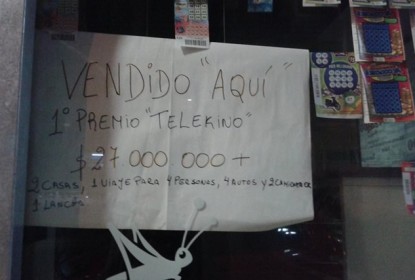 VENDIDO "AQUÍ"
1° PREMIO "TELEKINO"
$27 000 000 +
2 CASAS, 1 VIAJE PARA 4 PERSONAS, 4 AUTOS Y 2 CAMIONETAS
1 LANCHA